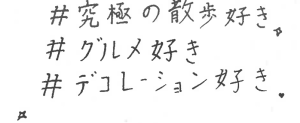 #究極の散歩好き。
#グルメ好き
#デコレーション好き.